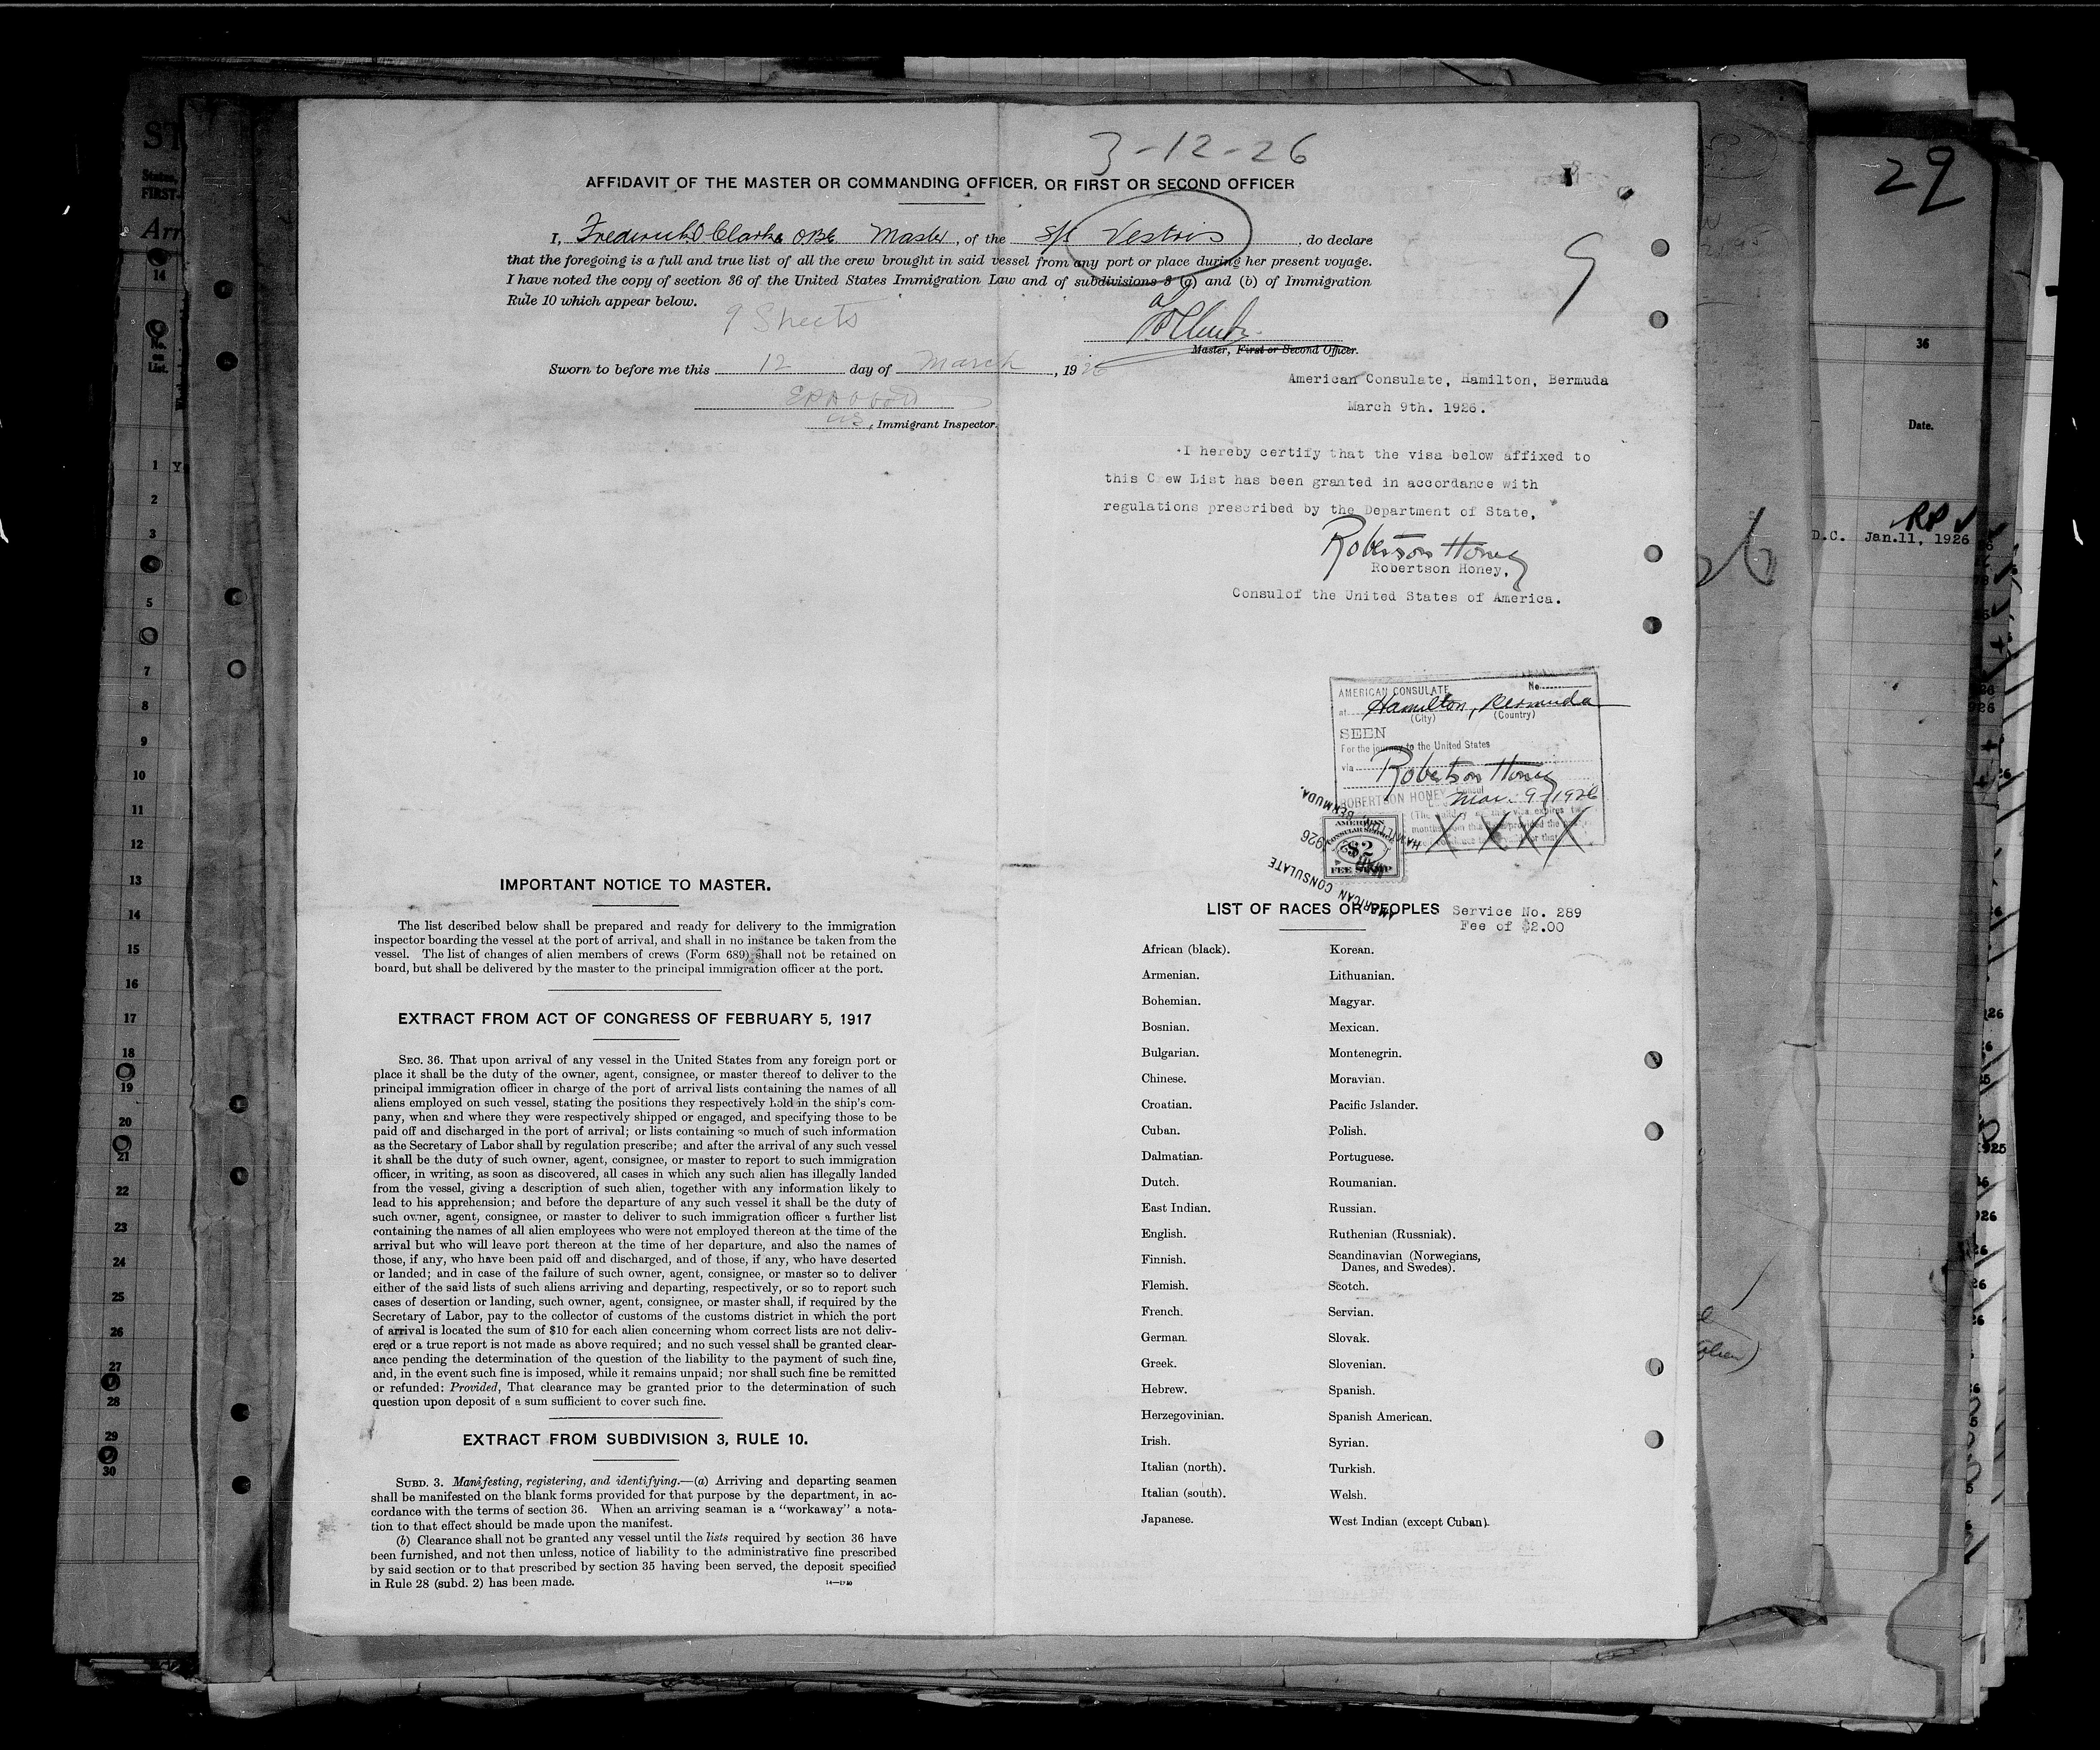 3-12-26
AFFIDAVIT OF THE MASTER OR COMMANDING OFFICER, OR FIRST OR SECOND OFFICER
I, Frederick D Clarke OBE Master, of the S/S Vestris, do declare
that the foregoing is a full and true list of all the crew brought in said vessel from any port or place during her present voyage.
I have noted the copy of section 36 of the United States Immigration Law and of subdivisions 3 (a) and (b) of Immigration
Rule 10 which appear below.
9 Sheets
9
Master, First or Second Officer.
Sworn to before me this 12 day of March, 1926
, Immigrant Inspector.
American Consulate, Hamilton, Bermuda
March 9th. 1926.
I hereby certify that the visa below affixed to
this Crew List has been granted in accordance with
regulations prescribed by the Department of State,
Robertson Honey
Robertson Honey,
Consulof the United States of America.
AMERICAN CONSULATE No.
at Hamilton, Bermuda
(City) (Country)
SEEN
For the journey to the United States
via
Robertson Honey
ROBERTSON HONEY Consul
Mar. 9, 1926
X XXX
AMERICAN CONSULATE
HAMILTON, BERMUDA.
1926
AMERICAN
CONSULAR SERVICE
$2
FEE STAMP
IMPORTANT NOTICE TO MASTER.
The list described below shall be prepared and ready for delivery to the immigration
inspector boarding the vessel at the port of arrival, and shall in no instance be taken from the
vessel. The list of changes of alien members of crews (Form 689) shall not be retained on
board, but shall be delivered by the master to the principal immigration officer at the port.
EXTRACT FROM ACT OF CONGRESS OF FEBRUARY 5, 1917
SEC. 36. That upon arrival of any vessel in the United States from any foreign port or
place it shall be the duty of the owner, agent, consignee, or master thereof to deliver to the
principal immigration officer in charge of the port of arrival lists containing the names of all
aliens employed on such vessel, stating the positions they respectively hold in the ship's com-
pany, when and where they were respectively shipped or engaged, and specifying those to be
paid off and discharged in the port of arrival; or lists containing so much of such information
as the Secretary of Labor shall by regulation prescribe; and after the arrival of any such vessel
it shall be the duty of such owner, agent, consignee, or master to report to such immigration
officer, in writing, as soon as discovered, all cases in which any such alien has illegally landed
from the vessel, giving a description of such alien, together with any information likely to
lead to his apprehension; and before the departure of any such vessel it shall be the duty of
such owner, agent, consignee, or master to deliver to such immigration officer a further list
containing the names of all alien employees who were not employed thereon at the time of the
arrival but who will leave port thereon at the time of her departure, and also the names of
those, if any, who have been paid off and discharged, and of those, if any, who have deserted
or landed; and in case of the failure of such owner, agent, consignee, or master so to deliver
either of the said lists of such aliens arriving and departing, respectively, or so to report such
cases of desertion or landing, such owner, agent, consignee, or master shall, if required by the
Secretary of Labor, pay to the collector of customs of the customs district in which the port
of arrival is located the sum of $10 for each alien concerning whom correct lists are not deliv-
ered or a true report is not made as above required; and no such vessel shall be granted clear-
ance pending the determination of the question of the liability to the payment of such fine,
and, in the event such fine is imposed, while it remains unpaid; nor shall such fine be remitted
or refunded: Provided, That clearance may be granted prior to the determination of such
question upon deposit of a sum sufficient to cover such fine.
EXTRACT FROM SUBDIVISION 3, RULE 10.
SUBD. 3. Manifesting, registering, and identifying.—(a) Arriving and departing seamen
shall be manifested on the blank forms provided for that purpose by the department, in ac-
cordance with the terms of section 36. When an arriving seaman is a "workaway" a nota-
tion to that effect should be made upon the manifest.
(b) Clearance shall not be granted any vessel until the lists required by section 36 have
been furnished, and not then unless, notice of liability to the administrative fine prescribed
by said section or to that prescribed by section 35 having been served, the deposit specified
in Rule 28 (subd. 2) has been made.
LIST OF RACES OR PEOPLES
Service No. 289
Fee of $2.00
African (black). Korean.
Armenian. Lithuanian.
Bohemian. Magyar.
Bosnian. Mexican.
Bulgarian. Montenegrin.
Chinese. Moravian.
Croatian. Pacific Islander.
Cuban. Polish.
Dalmatian. Portuguese.
Dutch. Roumanian.
East Indian. Russian.
English. Ruthenian (Russniak).
Finnish. Scandinavian (Norwegians,
Danes, and Swedes).
Flemish. Scotch.
French. Servian.
German. Slovak.
Greek. Slovenian.
Hebrew. Spanish.
Herzegovinian. Spanish American.
Irish. Syrian.
Italian (north). Turkish.
Italian (south). Welsh.
Japanese. West Indian (except Cuban).
29
36
Date.
D.C. Jan.11, 1926